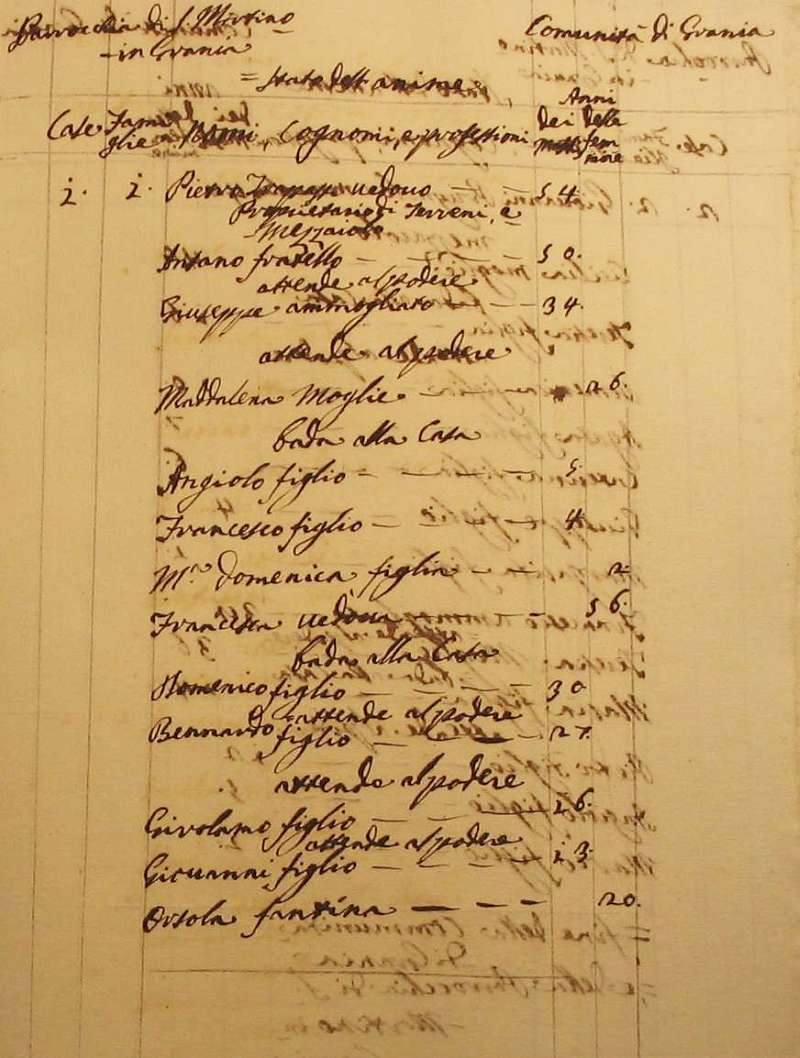 Parrocchia di S. Martino Comunità di Grania
in Grania
= Stato dell anime =
Anni
Case Fami Nomi, Cognomi, e professioni dei delle
glie maschi fem
mine
1. 1. Pietro vedovo — — 54
Proprietario di Terreni, e
Mezzaiolo
Antano fratello — — 50.
attende al podere
Giuseppe ammogliato — — 34.
attende al podere
Maddalena Moglie — — 26.
bada alla Casa
Angiolo figlio — — — 5.
Francesco figlio — — — 4.
M.a Domenica figlia — — 2.
Francesca vedova — — 56.
bada alla Casa
Domenico figlio — — — 30
attende al podere
Bernardo figlio — — — 27.
attende al podere
Girolamo figlio — — — 16.
attende al podere
Giovanni figlio — — — 13.
Orsola fantina — — — 20.